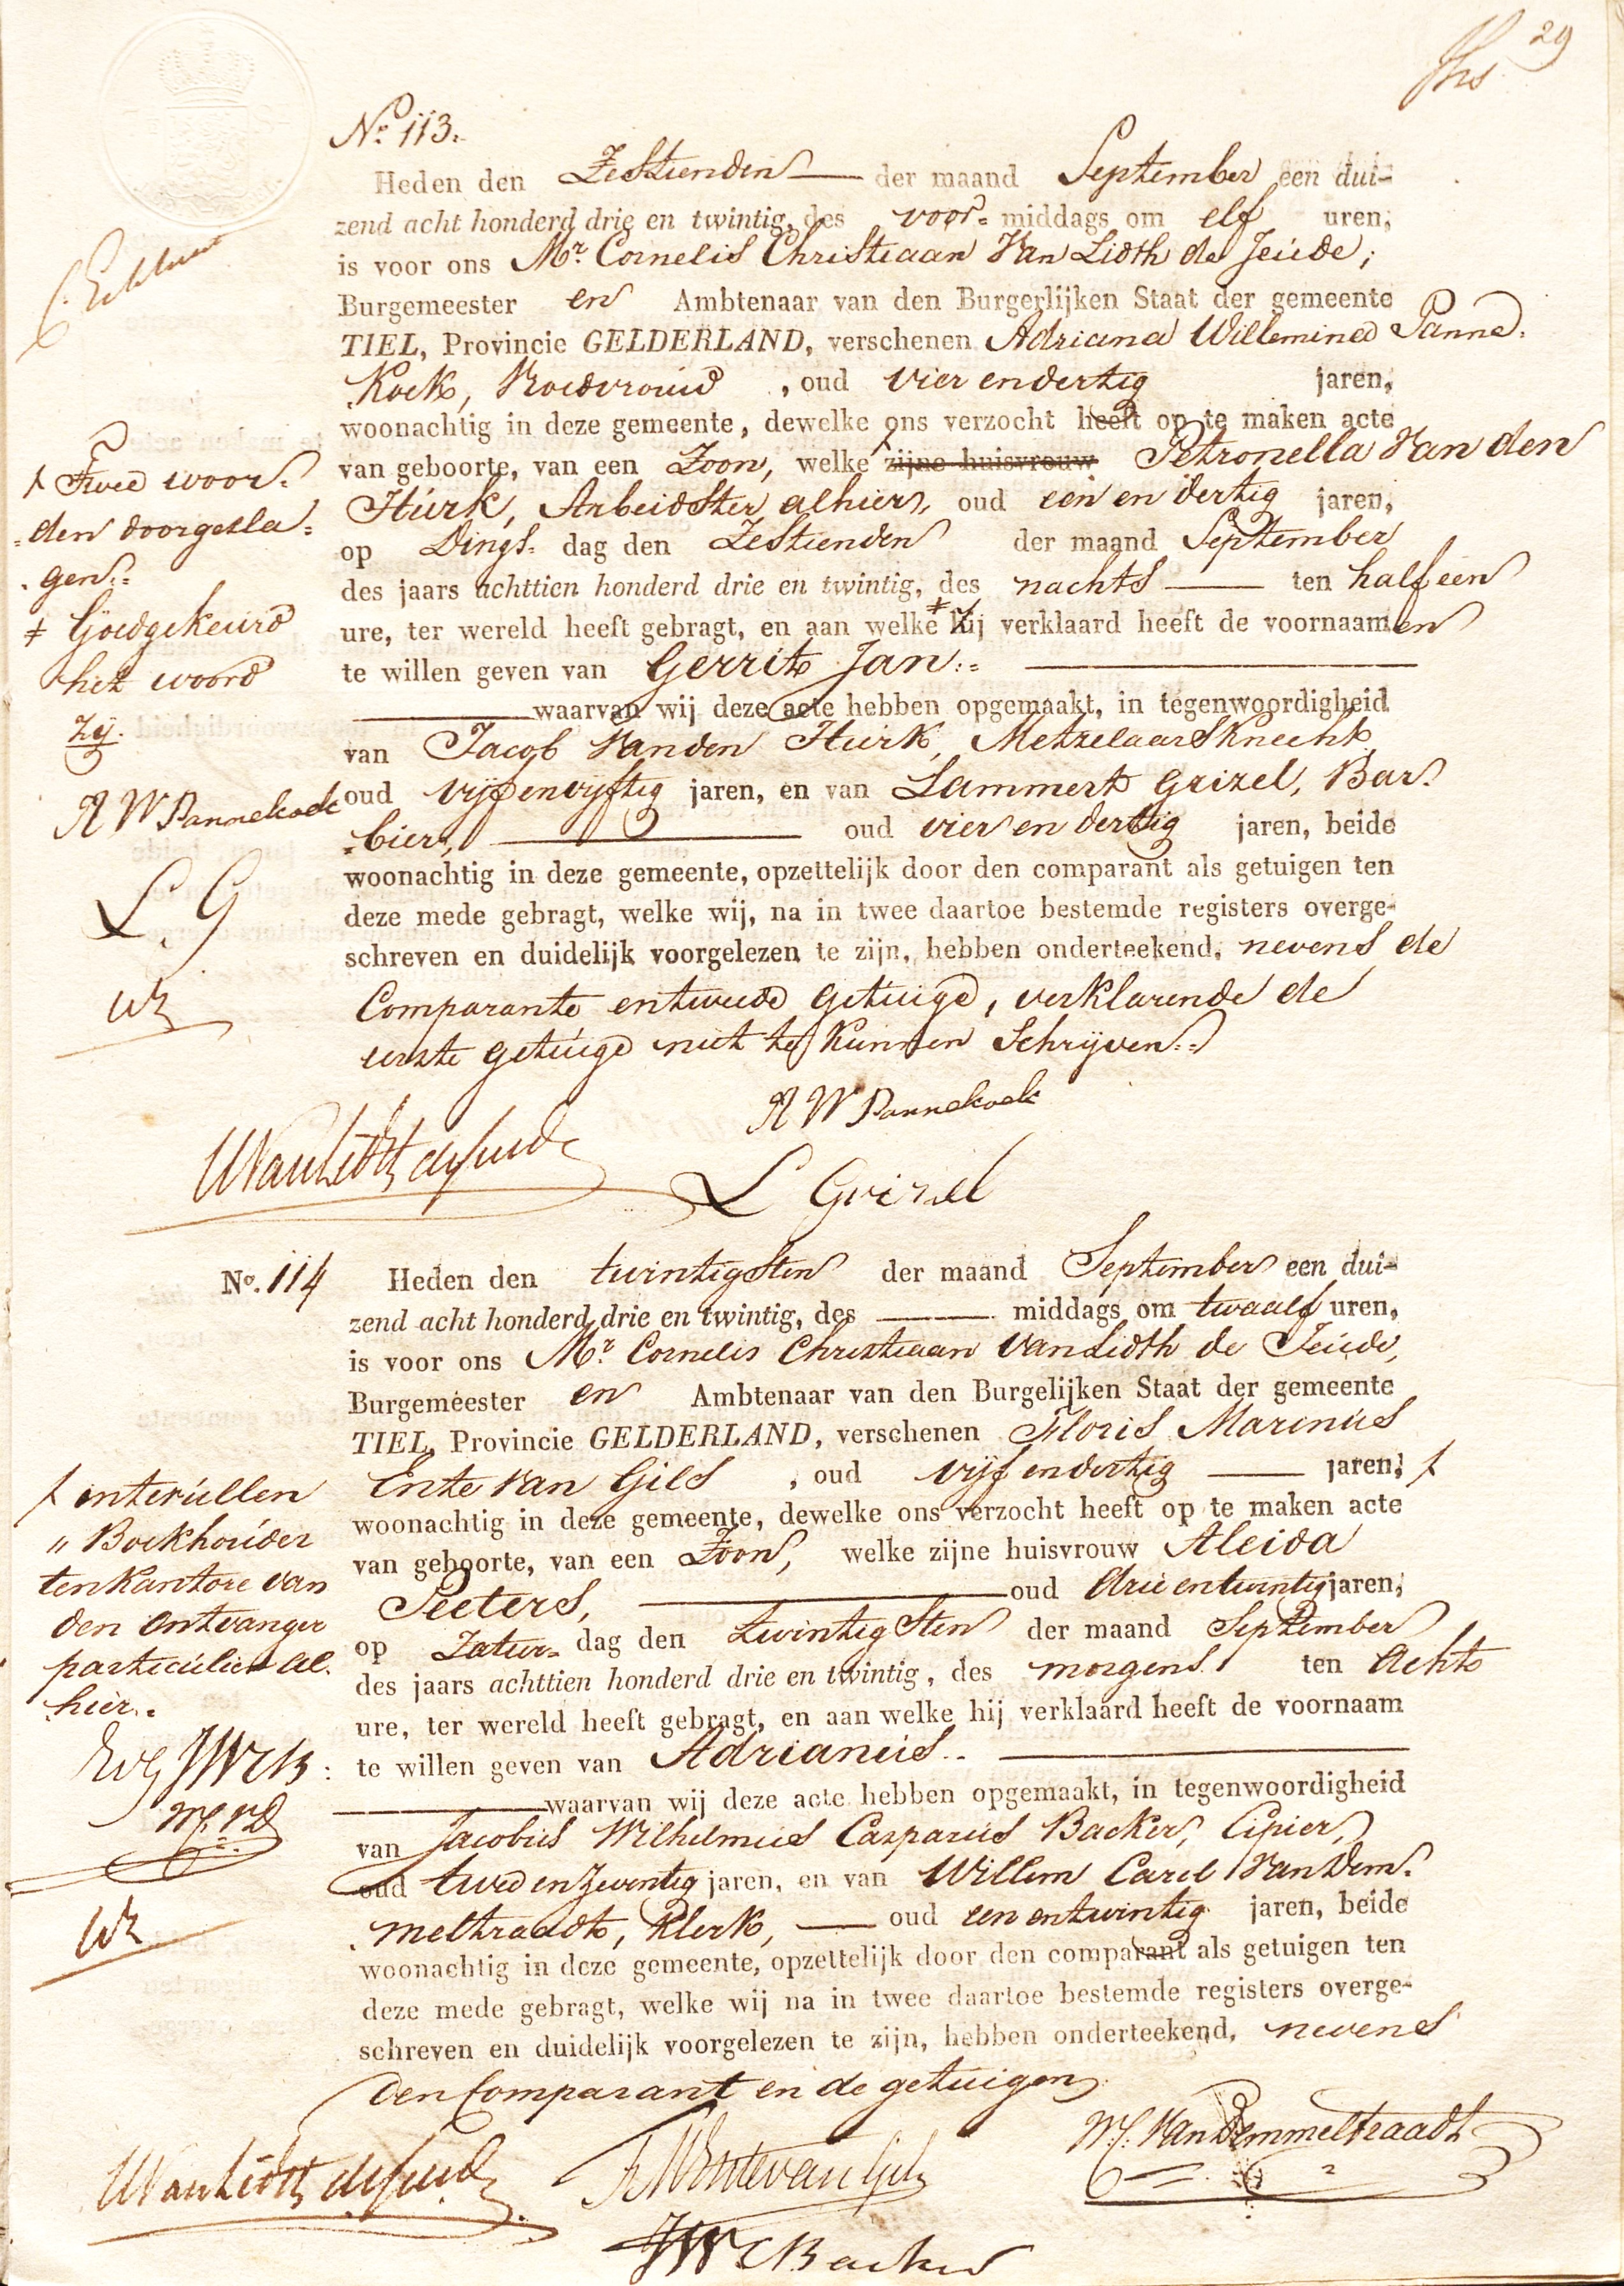 29
No. 113.
Heden den Zestienden der maand September een dui-
zend acht honderd drie en twintig, des voor- middags om elf uren,
is voor ons Mr. Cornelis Christiaan Van Lidth de Jeude;
Burgemeester en Ambtenaar van den Burgerlijken Staat der gemeente
TIEL, Provincie GELDERLAND, verschenen Adriana Willemina Panne-
koek, Vroedvrouw, oud vier en dertig jaren,
woonachtig in deze gemeente, dewelke ons verzocht heeft op te maken acte
van geboorte, van een Zoon, welke zijne huisvrouw Petronella Van den
Hurk, Arbeidster alhier, oud een en dertig jaren,
op Dings- dag den Zestienden der maand September
des jaars achttien honderd drie en twintig, des nachts ten half een
ure, ter wereld heeft gebragt, en aan welke Zij verklaard heeft de voornaamen
te willen geven van Gerrit Jan.
waarvan wij deze acte hebben opgemaakt, in tegenwoordigheid
van Jacob Van den Hurk, Metzelaars Knecht,
oud vijf en vijftig jaren, en van Lammert Grizel, Bar-
bier, oud vier en dertig jaren, beide
woonachtig in deze gemeente, opzettelijk door den comparant als getuigen ten
deze mede gebragt, welke wij, na in twee daartoe bestemde registers overge-
schreven en duidelijk voorgelezen te zijn, hebben onderteekend, nevens de
Comparante en tweede getuige, verklarende de
eerste getuige niet te Kunnen Schrijven.
Twee woor-
den doorgesla-
gen.
Goedgekeurd
het woord
zij.
A W Pannekoek
L. G
A W Pannekoek
L Grizel
No. 114 Heden den twintigsten der maand September een dui-
zend acht honderd drie en twintig, des middags om twaalf uren,
is voor ons Mr. Cornelis Christiaan Van Lidth de Jeude,
Burgemeester en Ambtenaar van den Burgelijken Staat der gemeente
TIEL, Provincie GELDERLAND, verschenen Floris Marinus
Ente van Gils, oud vijf en dertig jaren,
woonachtig in deze gemeente, dewelke ons verzocht heeft op te maken acte
van geboorte, van een Zoon, welke zijne huisvrouw Aleida
Peeters, oud drie en twintig jaren,
op Zatur- dag den twintigsten der maand September
des jaars achttien honderd drie en twintig, des morgens ten Acht
ure, ter wereld heeft gebragt, en aan welke hij verklaard heeft de voornaam
te willen geven van Adrianus.
waarvan wij deze acte hebben opgemaakt, in tegenwoordigheid
van Jacobus Wilhelmus Casparus Backer, Cipier,
oud twee en zeventig jaren, en van Willem Carel Van Dem-
meltraadt, Klerk, oud een en twintig jaren, beide
woonachtig in deze gemeente, opzettelijk door den comparant als getuigen ten
deze mede gebragt, welke wij na in twee daartoe bestemde registers overge-
schreven en duidelijk voorgelezen te zijn, hebben onderteekend, nevens
den Comparant en de getuigen
intevullen
" Boekhouder
ten Kantore van
den ontvanger
particulier al-
hier.
F M Ente van Gils
W C Van Demmeltraadt
J W C Backer